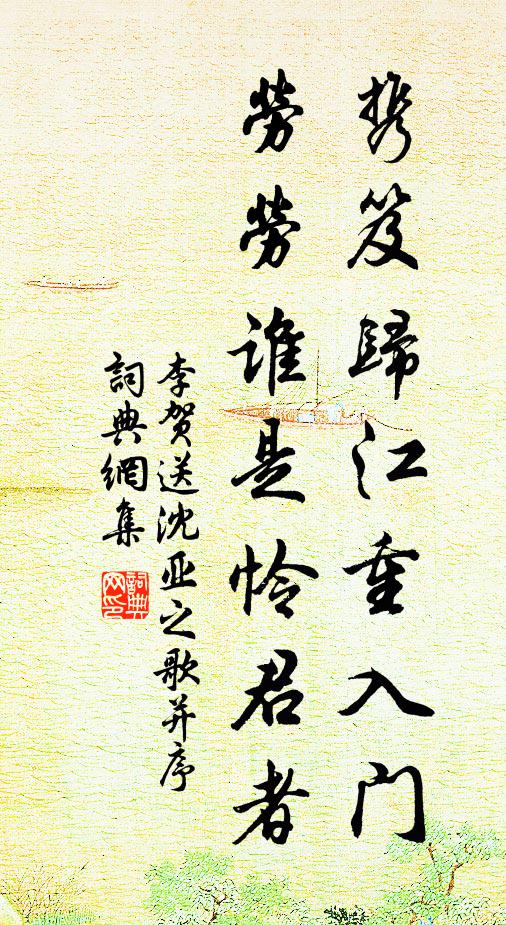 携笈歸江重入门
勞勞谁是怜君者
李贺送沈亚之歌并序
詞典網集
詞典网印